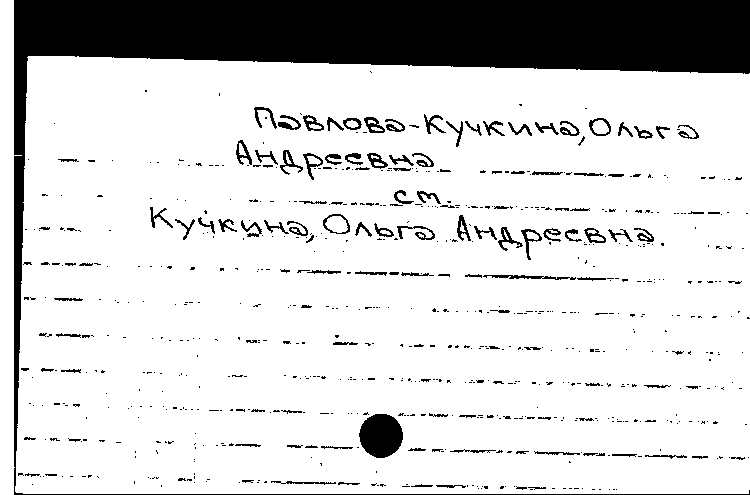 Павлова-Кучкина, Ольга
Андреевна
см.
Кучкина, Ольга Андреевна.